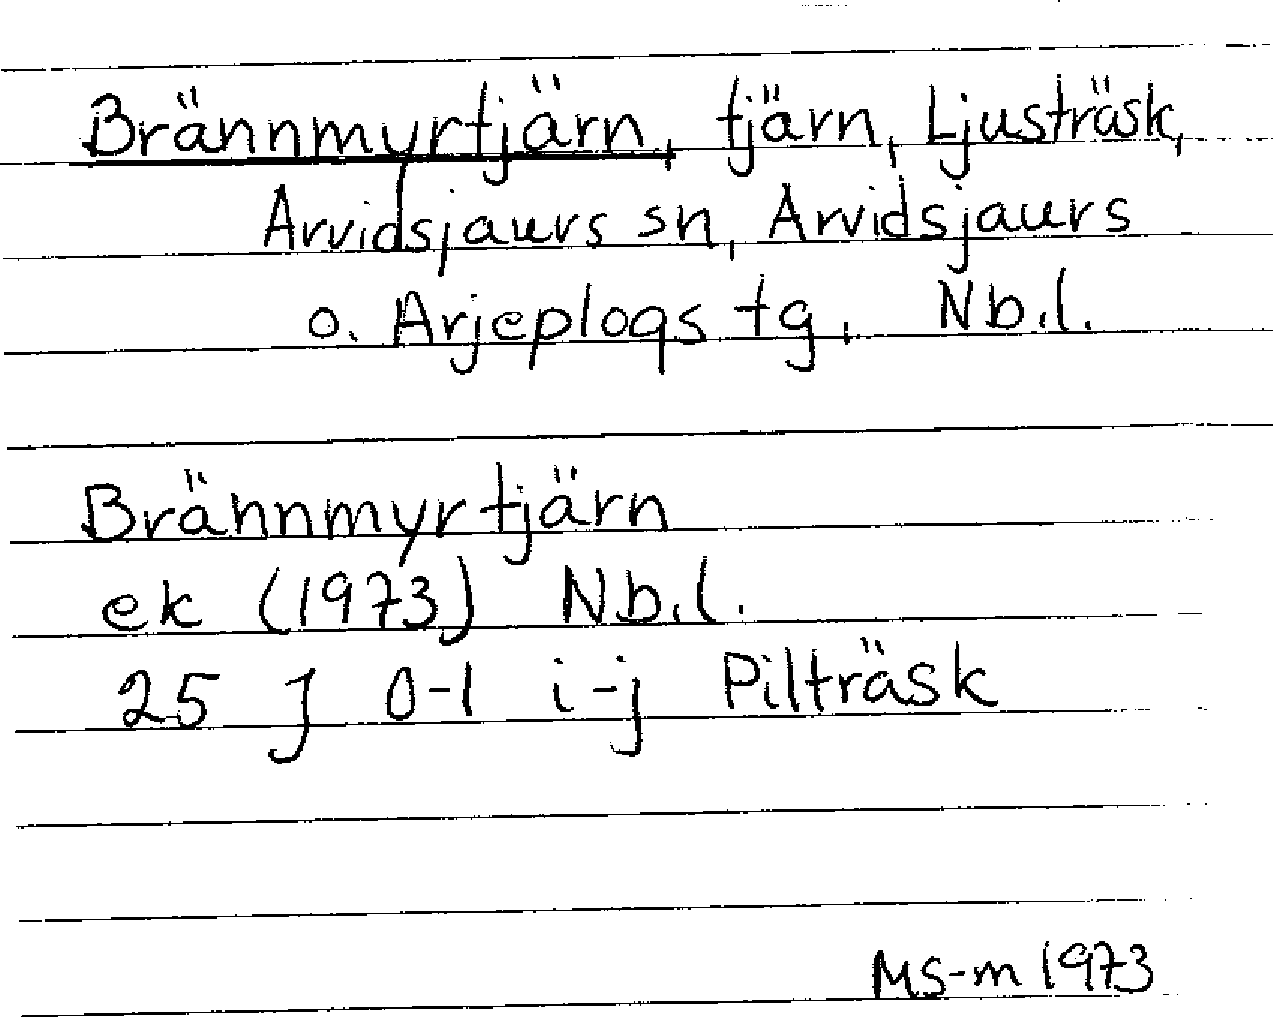 Brännmyrtjärn, tjärn, Ljusträsk,
Arvidsjaurs sn, Arvidsjaurs
o. Arjeplogs tg, Nb.l.
Brännmyrtjärn
ek (1973) Nb.l.
25 J 0-1 i-j Pilträsk
MS-m 1973